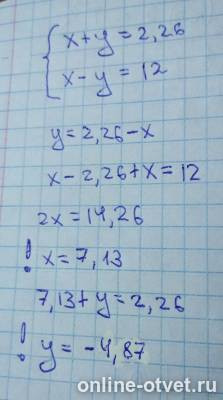 x+y=2,26
x-y=12
y=2,26-x
x-2,26+x=12
2x=14,26
! x=7,13
7,13+y=2,26
! y=-4,87
online-otvet.ru